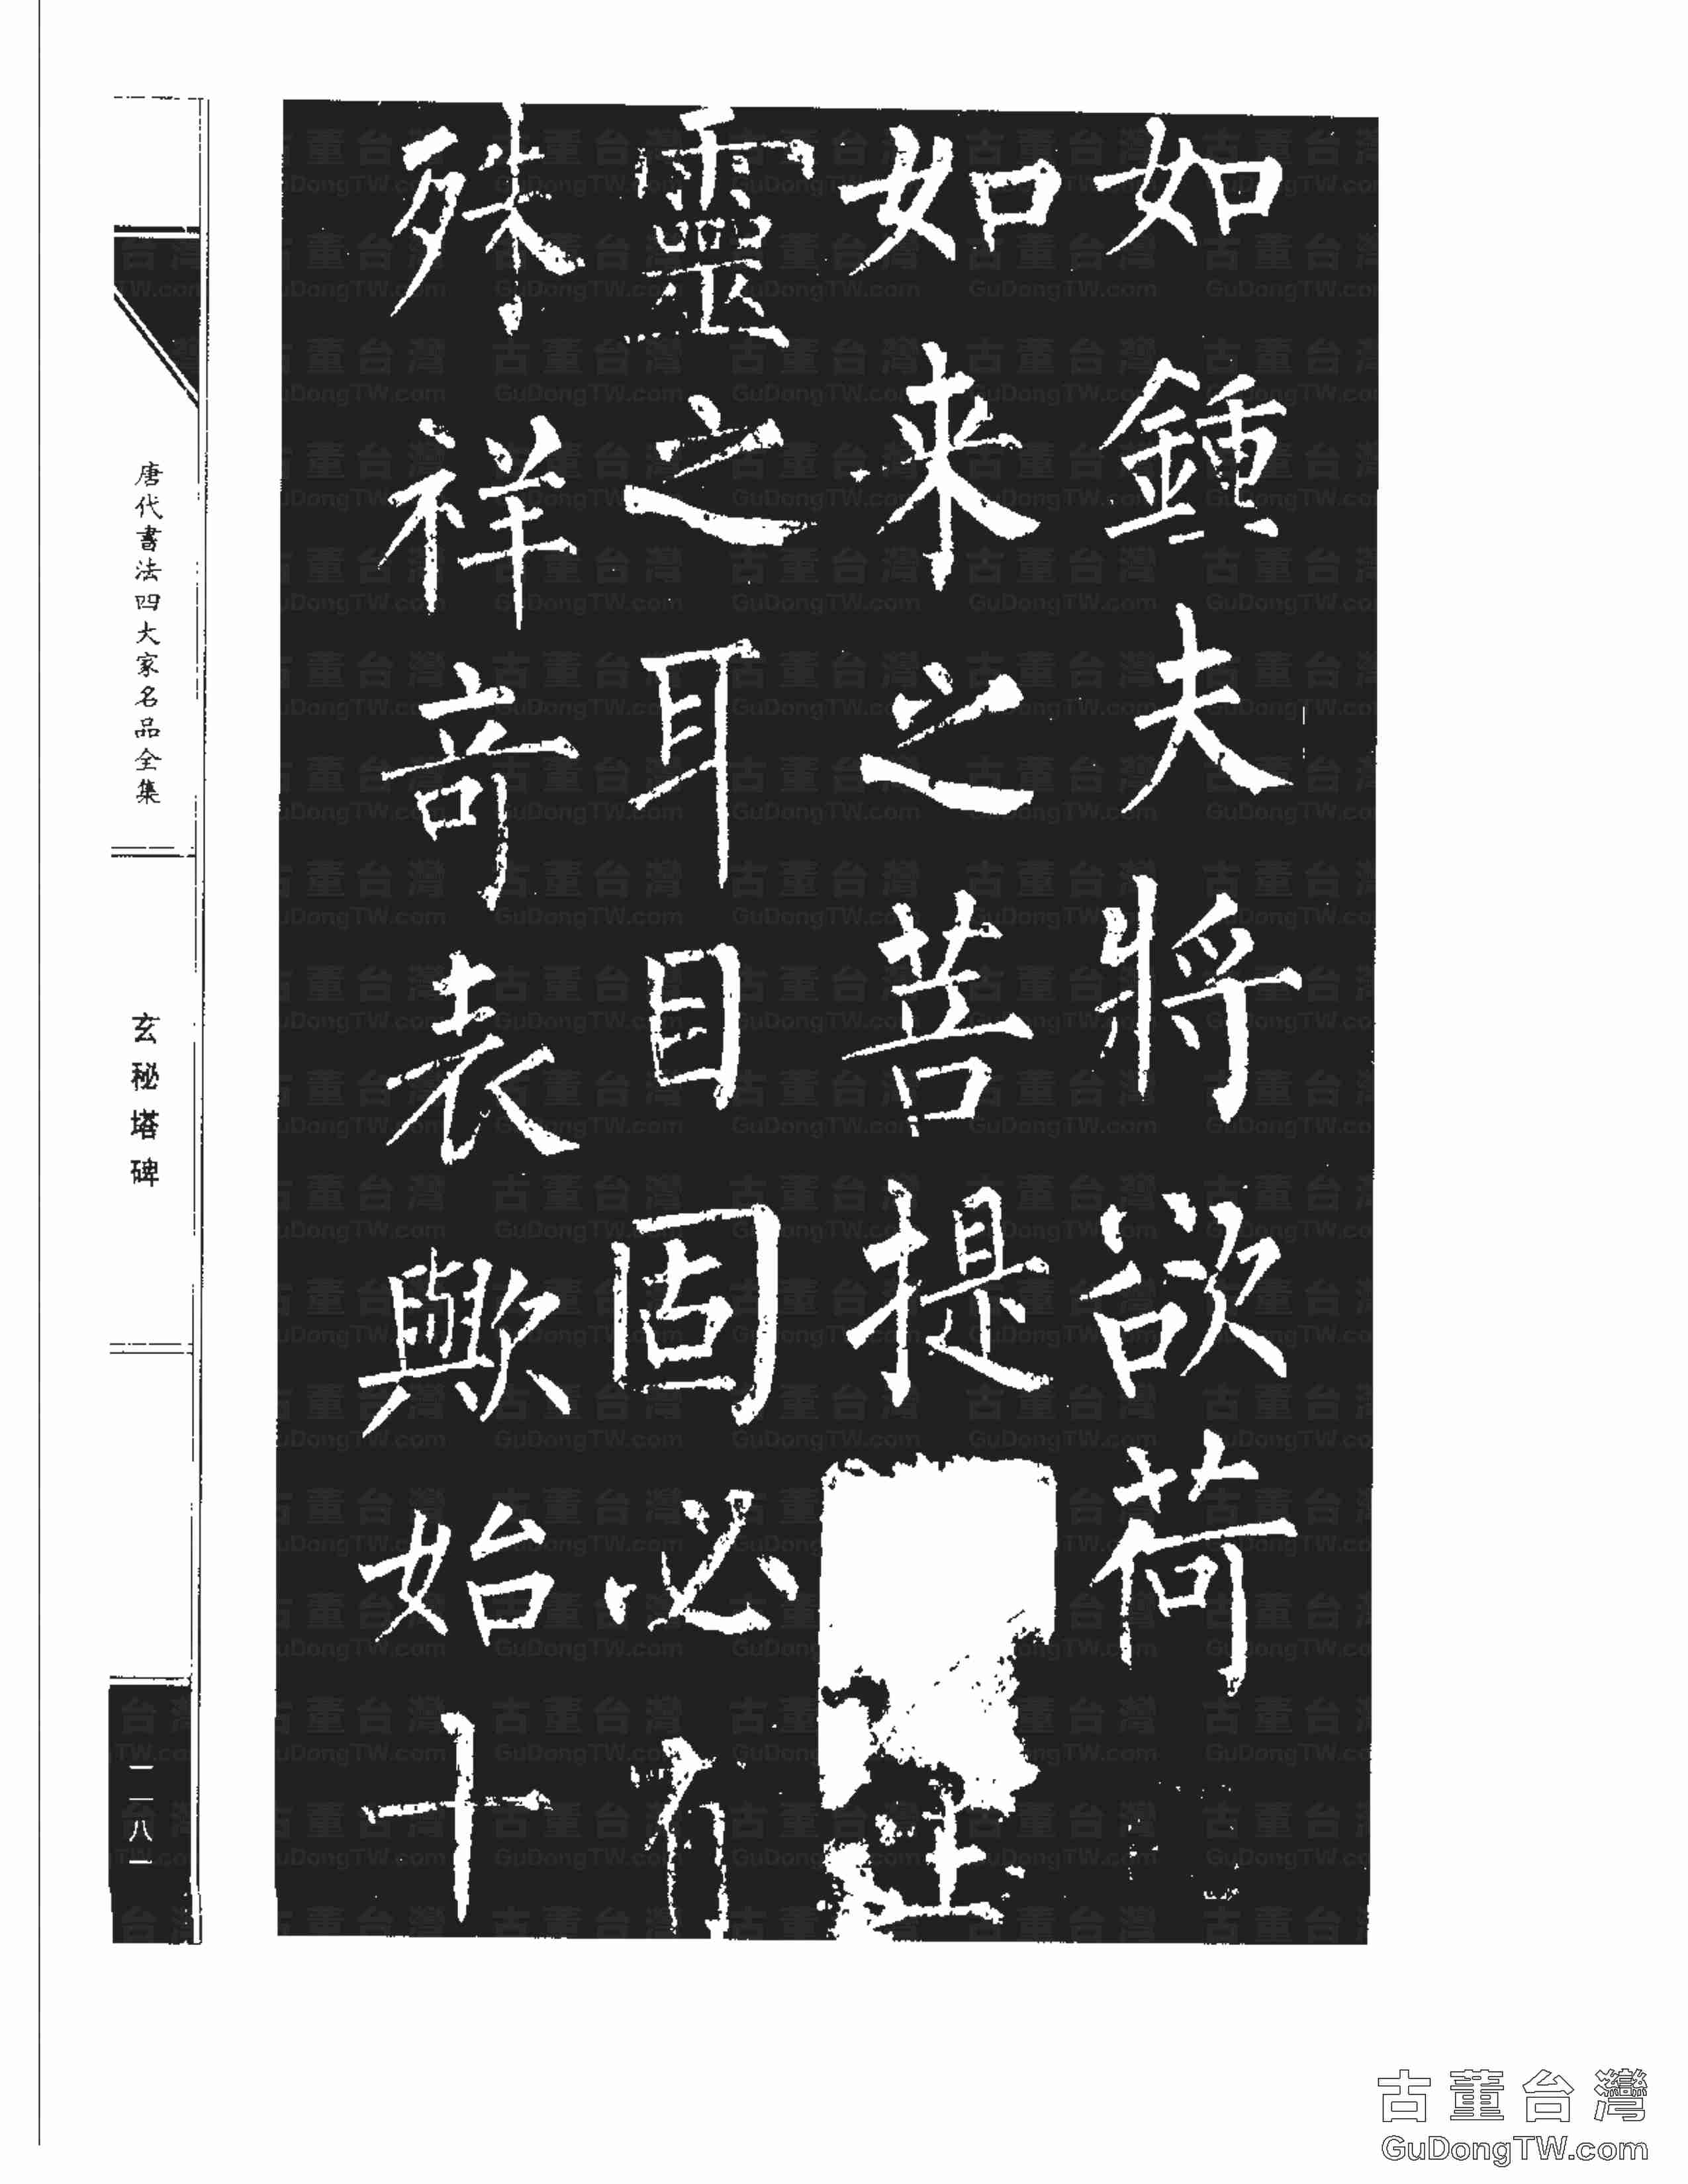 如鍾夫將欲荷
如来之菩提
靈之耳目固必有
殊祥竒表歟始十
唐代書法四大家名品全集
玄秘塔碑
一二八一
古董台灣
GuDongTW.com